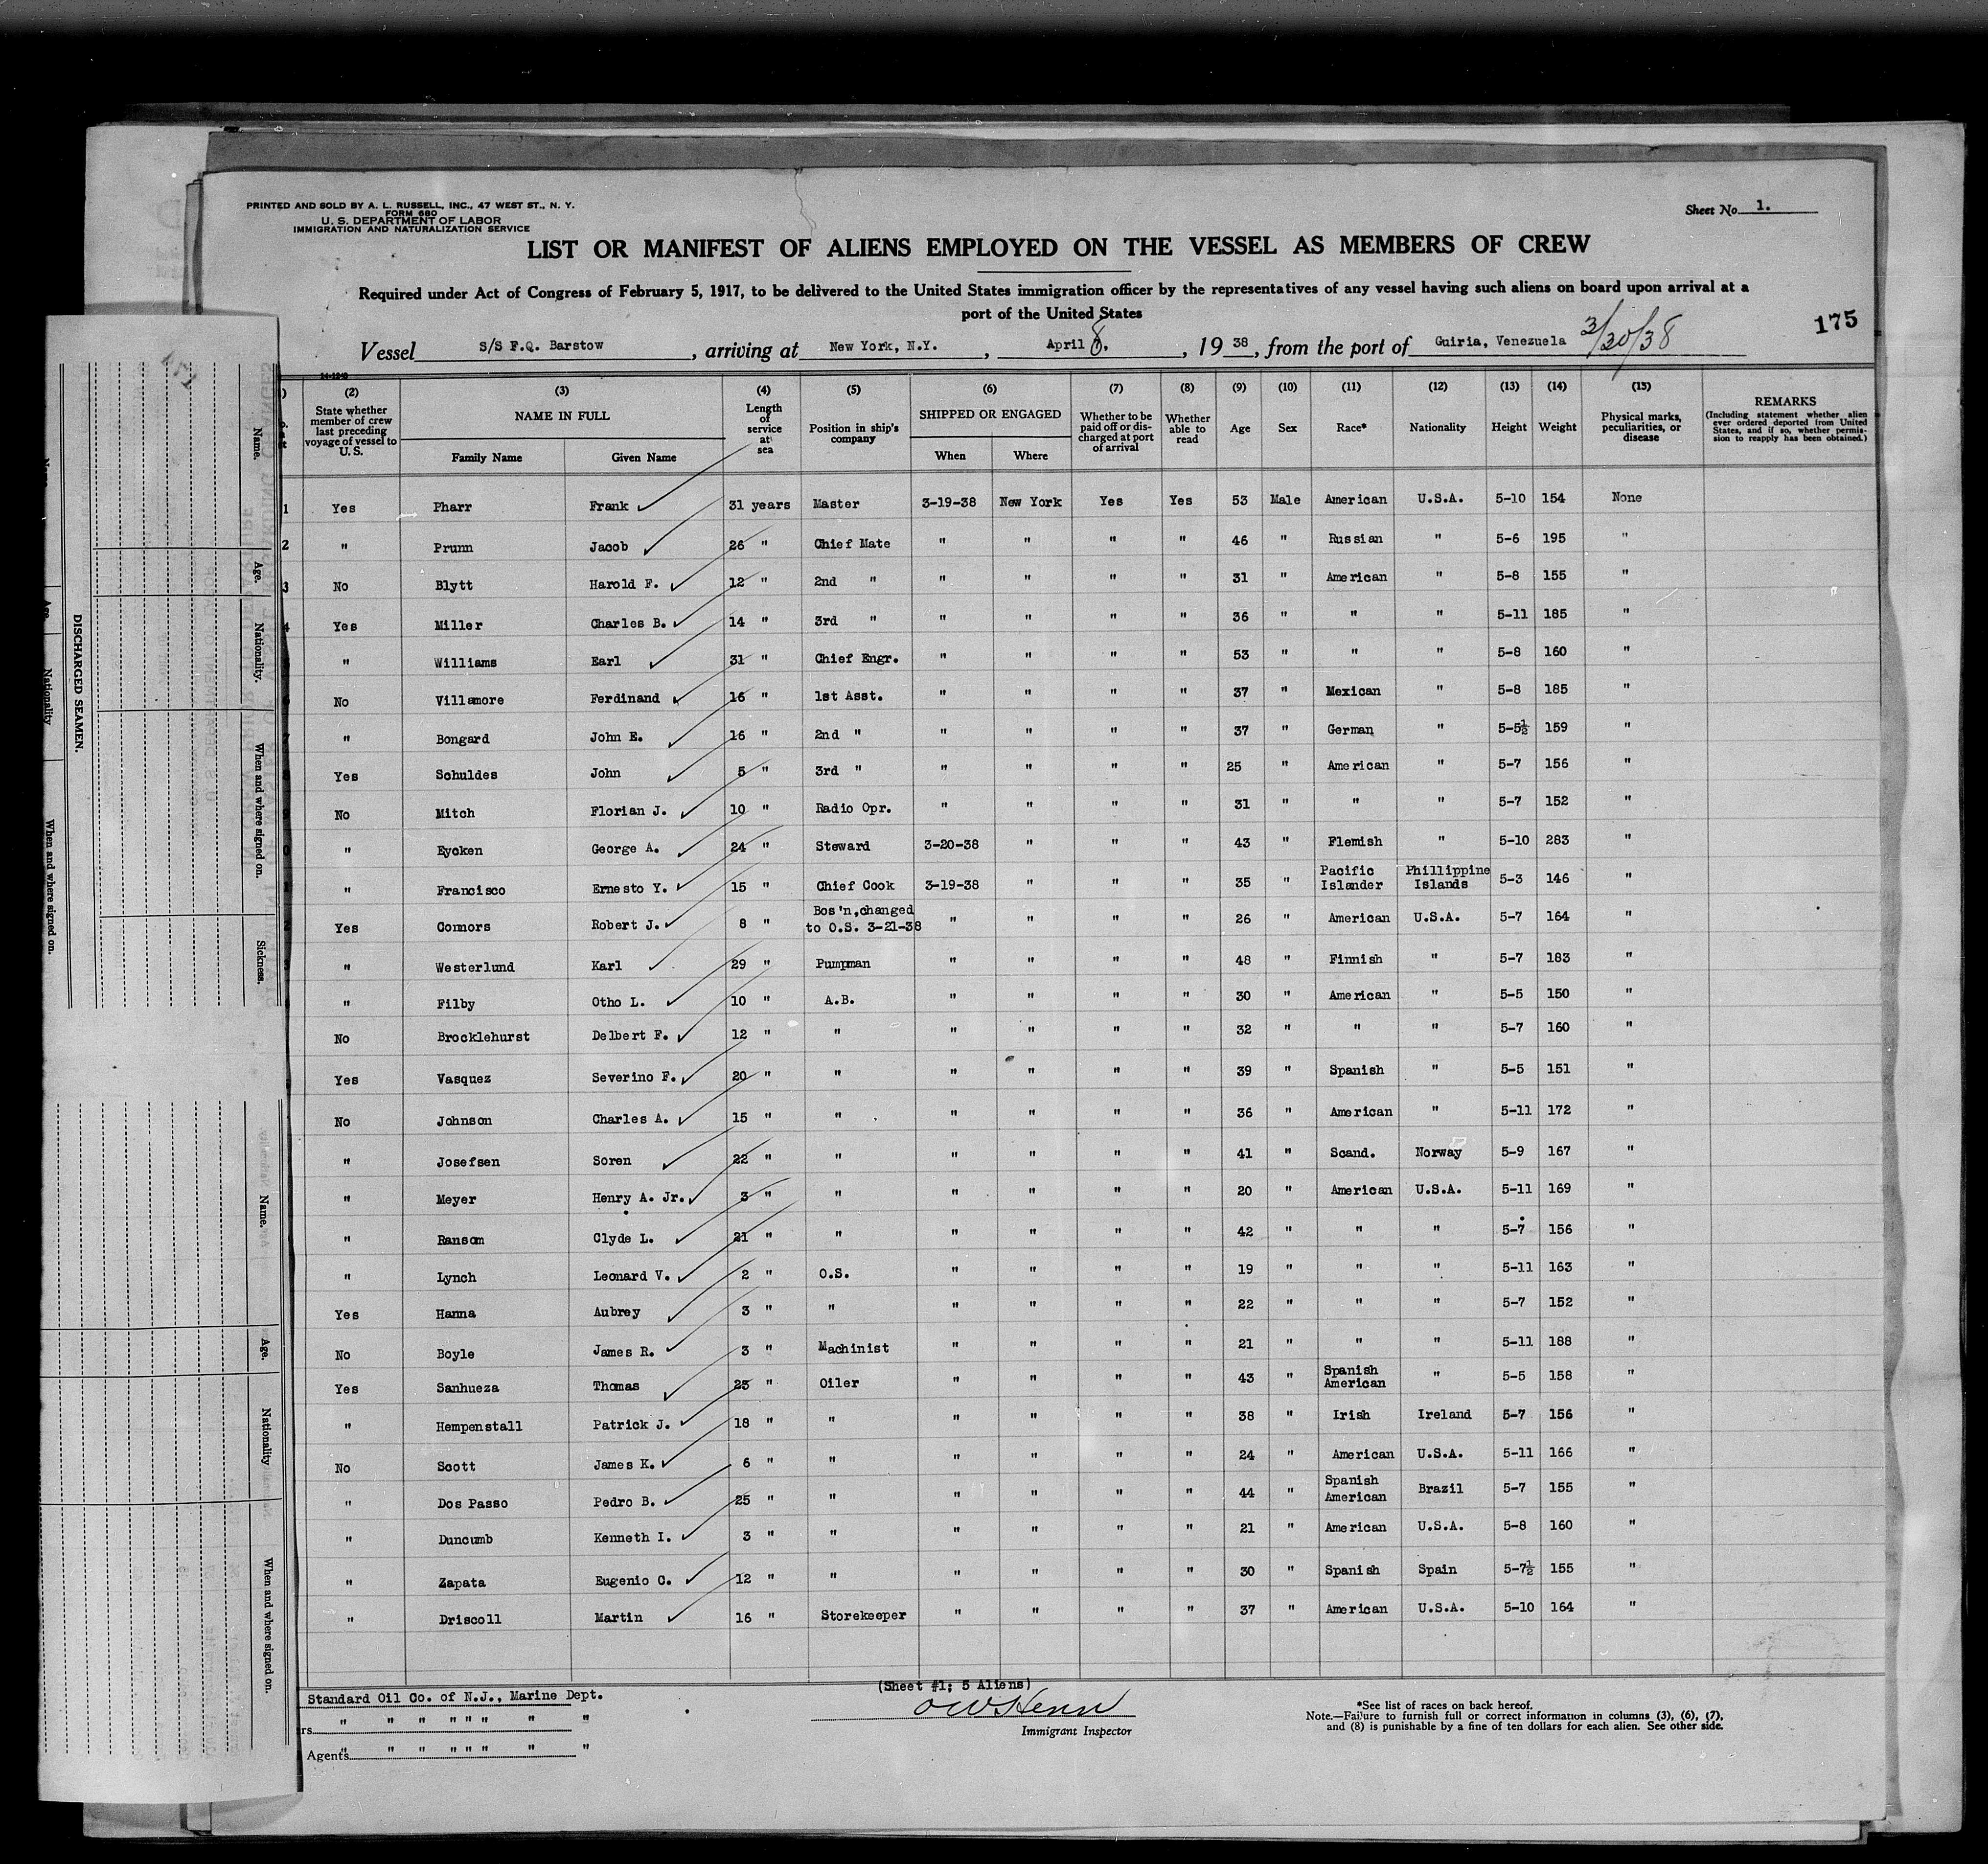 PRINTED AND SOLD BY A. L. RUSSELL, INC., 47 WEST ST., N. Y.
FORM 680
U. S. DEPARTMENT OF LABOR
IMMIGRATION AND NATURALIZATION SERVICE
Sheet No. 1.
LIST OR MANIFEST OF ALIENS EMPLOYED ON THE VESSEL AS MEMBERS OF CREW
Required under Act of Congress of February 5, 1917, to be delivered to the United States immigration officer by the representatives of any vessel having such aliens on board upon arrival at a
port of the United States
175
Vessel S/S F.Q. Barstow, arriving at New York, N.Y., April 8, 1938, from the port of Guiria, Venezuela 3/20/38
(2) State whether member of crew last preceding voyage of vessel to U. S.
(3) NAME IN FULL Family Name Given Name
(4) Length of service at sea
(5) Position in ship's company
(6) SHIPPED OR ENGAGED When Where
(7) Whether to be paid off or discharged at port of arrival
(8) Whether able to read
(9) Age
(10) Sex
(11) Race*
(12) Nationality
(13) Height
(14) Weight
(15) Physical marks, peculiarities, or disease
REMARKS (Including statement whether alien ever ordered deported from United States, and if so, whether permission to reapply has been obtained.)
1 Yes Pharr Frank 31 years Master 3-19-38 New York Yes Yes 53 Male American U.S.A. 5-10 154 None
2 " Prunn Jacob 26 " Chief Mate " " " " 46 " Russian " 5-6 195 "
3 No Blytt Harold F. 12 " 2nd " " " " " 31 " American " 5-8 155 "
4 Yes Miller Charles B. 14 " 3rd " " " " " 36 " " " 5-11 185 "
" Williams Earl 31 " Chief Engr. " " " " 53 " " " 5-8 160 "
No Villamore Ferdinand 16 " 1st Asst. " " " " 37 " Mexican " 5-8 185 "
" Bongard John E. 16 " 2nd " " " " " 37 " German " 5-5½ 159 "
Yes Schuldes John 5 " 3rd " " " " " 25 " American " 5-7 156 "
No Mitch Florian J. 10 " Radio Opr. " " " " 31 " " " 5-7 152 "
" Eycken George A. 24 " Steward 3-20-38 " " " 43 " Flemish " 5-10 283 "
" Francisco Ernesto Y. 15 " Chief Cook 3-19-38 " " " 35 " Pacific Islander Phillippine Islands 5-3 146 "
Yes Connors Robert J. 8 " Bos'n, changed to O.S. 3-21-38 " " " " 26 " American U.S.A. 5-7 164 "
" Westerlund Karl 29 " Pumpman " " " " 48 " Finnish " 5-7 183 "
" Filby Otho L. 10 " A.B. " " " " 30 " American " 5-5 150 "
No Brocklehurst Delbert F. 12 " " " " " " 32 " " " 5-7 160 "
Yes Vasquez Severino F. 20 " " " " " " 39 " Spanish " 5-5 151 "
No Johnson Charles A. 15 " " " " " " 36 " American " 5-11 172 "
" Josefsen Soren 22 " " " " " " 41 " Scand. Norway 5-9 167 "
" Meyer Henry A. Jr. 3 " " " " " " 20 " American U.S.A. 5-11 169 "
" Ransom Clyde L. 21 " " " " " " 42 " " " 5-7 156 "
" Lynch Leonard V. 2 " O.S. " " " " 19 " " " 5-11 163 "
Yes Hanna Aubrey 3 " " " " " " 22 " " " 5-7 152 "
No Boyle James R. 3 " Machinist " " " " 21 " " " 5-11 188 "
Yes Sanhueza Thomas 23 " Oiler " " " " 43 " Spanish American " 5-5 158 "
" Hempenstall Patrick J. 18 " " " " " " 38 " Irish Ireland 5-7 156 "
No Scott James K. 6 " " " " " " 24 " American U.S.A. 5-11 166 "
" Dos Passo Pedro B. 25 " " " " " " 44 " Spanish American Brazil 5-7 155 "
" Duncumb Kenneth I. 3 " " " " " " 21 " American U.S.A. 5-8 160 "
" Zapata Eugenio C. 12 " " " " " " 30 " Spanish Spain 5-7½ 155 "
" Driscoll Martin 16 " Storekeeper " " " " 37 " American U.S.A. 5-10 164 "
Standard Oil Co. of N.J., Marine Dept.
rs " " " " " " " "
Agents " " " " " " " "
(Sheet #1; 5 Aliens)
Immigrant Inspector
*See list of races on back hereof.
Note.—Failure to furnish full or correct information in columns (3), (6), (7),
and (8) is punishable by a fine of ten dollars for each alien. See other side.
DISCHARGED SEAMEN.
Name. Age. Nationality. When and where signed on. Sickness.
Name. Age. Nationality When and where signed on.
Age. Nationality When and where signed on.